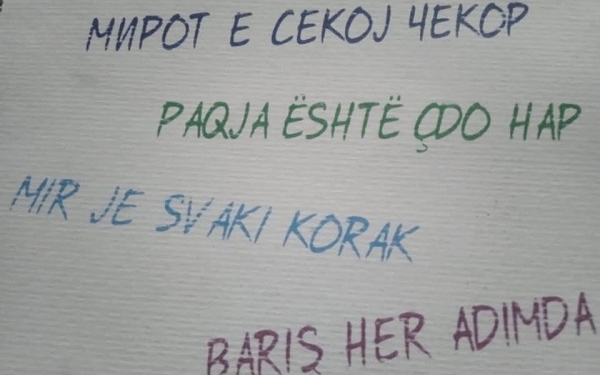 МИРОТ Е СЕКОЈ ЧЕКОР
PAQJA ËSHTË ÇDO HAP
MIR JE SVAKI KORAK
BARIŞ HER ADIMDA